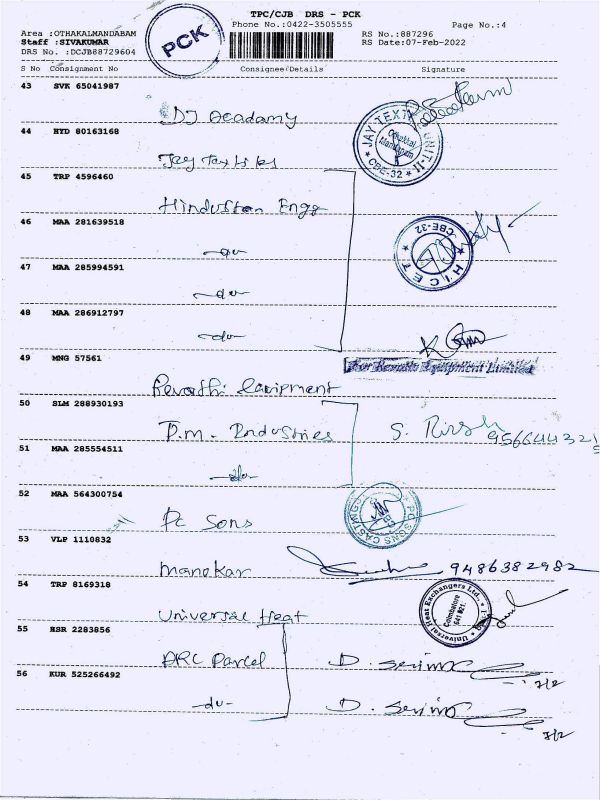 TPC/CJB DRS - PCK
Phone No.:0422-3505555
Page No.:4
Area :OTHAKALMANDABAM
Staff :SIVAKUMAR
DRS No. :DCJB88729604
PCK
RS No.:887296
RS Date:07-Feb-2022
S No Consignment No Consignee/Details Signature
43 SVK 65041987
DJ Acadamy
44 HYD 80163168
Jay Textiles
JAY TEXT UNIT-II
CBE-32
45 TRP 4596460
Hindustan Engg
46 MAA 281639518
-do-
HICET
CBE-32
47 MAA 285994591
-do-
48 MAA 286912797
-do-
49 MNG 57561
For Revathi Equipment Limited
Revathi Equipment
50 SLM 288930193
P.m. Industries
S.
51 MAA 285554511
-do-
52 MAA 564300754
Pc Sons
PC SONS CASTINGS
53 VLP 1110832
Manokar
9486382982
54 TRP 8169318
Universal Heat
Universal Heat Exchangers Ltd.,
Coimbatore
641 021.
55 HSR 2283856
ARC Parcel
D.
7/2
56 KUR 525266492
-do-
D.
7/2